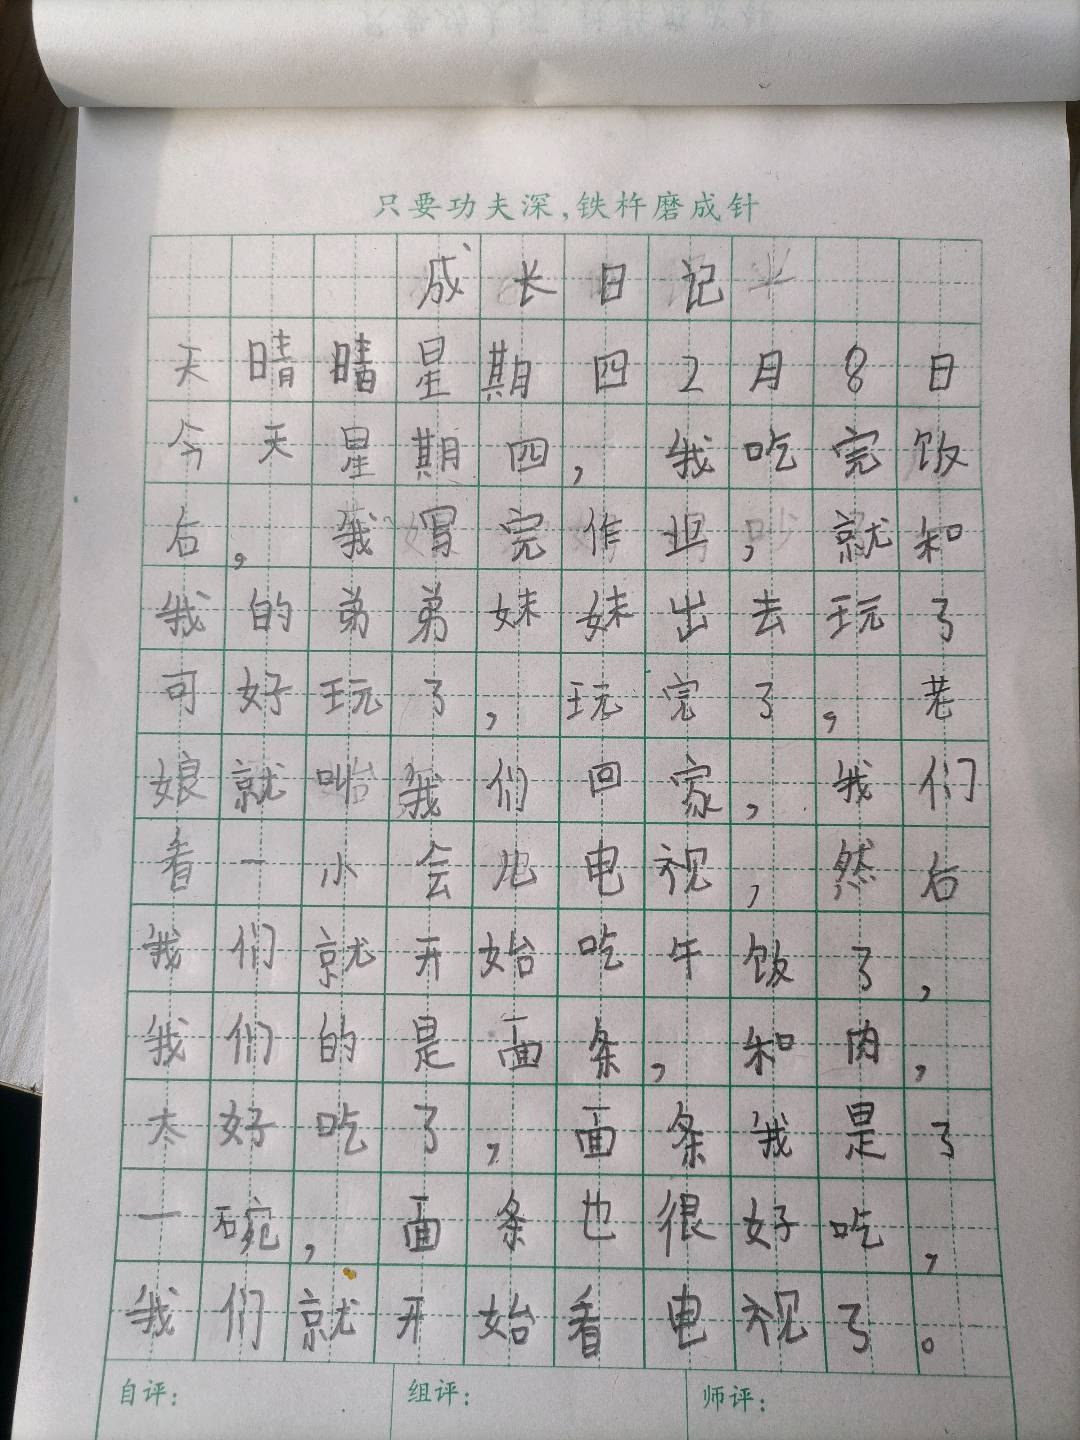 只要功夫深,铁杵磨成针
成长日记
天晴晴星期四2月8日
今天星期四,我吃完饭
后,我写完作业,就和
我的弟弟妹妹出去玩了
可好玩了,玩完了,老
娘就叫我们回家,我们
看一小会儿电视,然后
我们就开始吃午饭了,
我们的是面条,和肉,
太好吃了,面条我是了
一碗,面条也很好吃,
我们就开始看电视了。
自评: 组评: 师评: